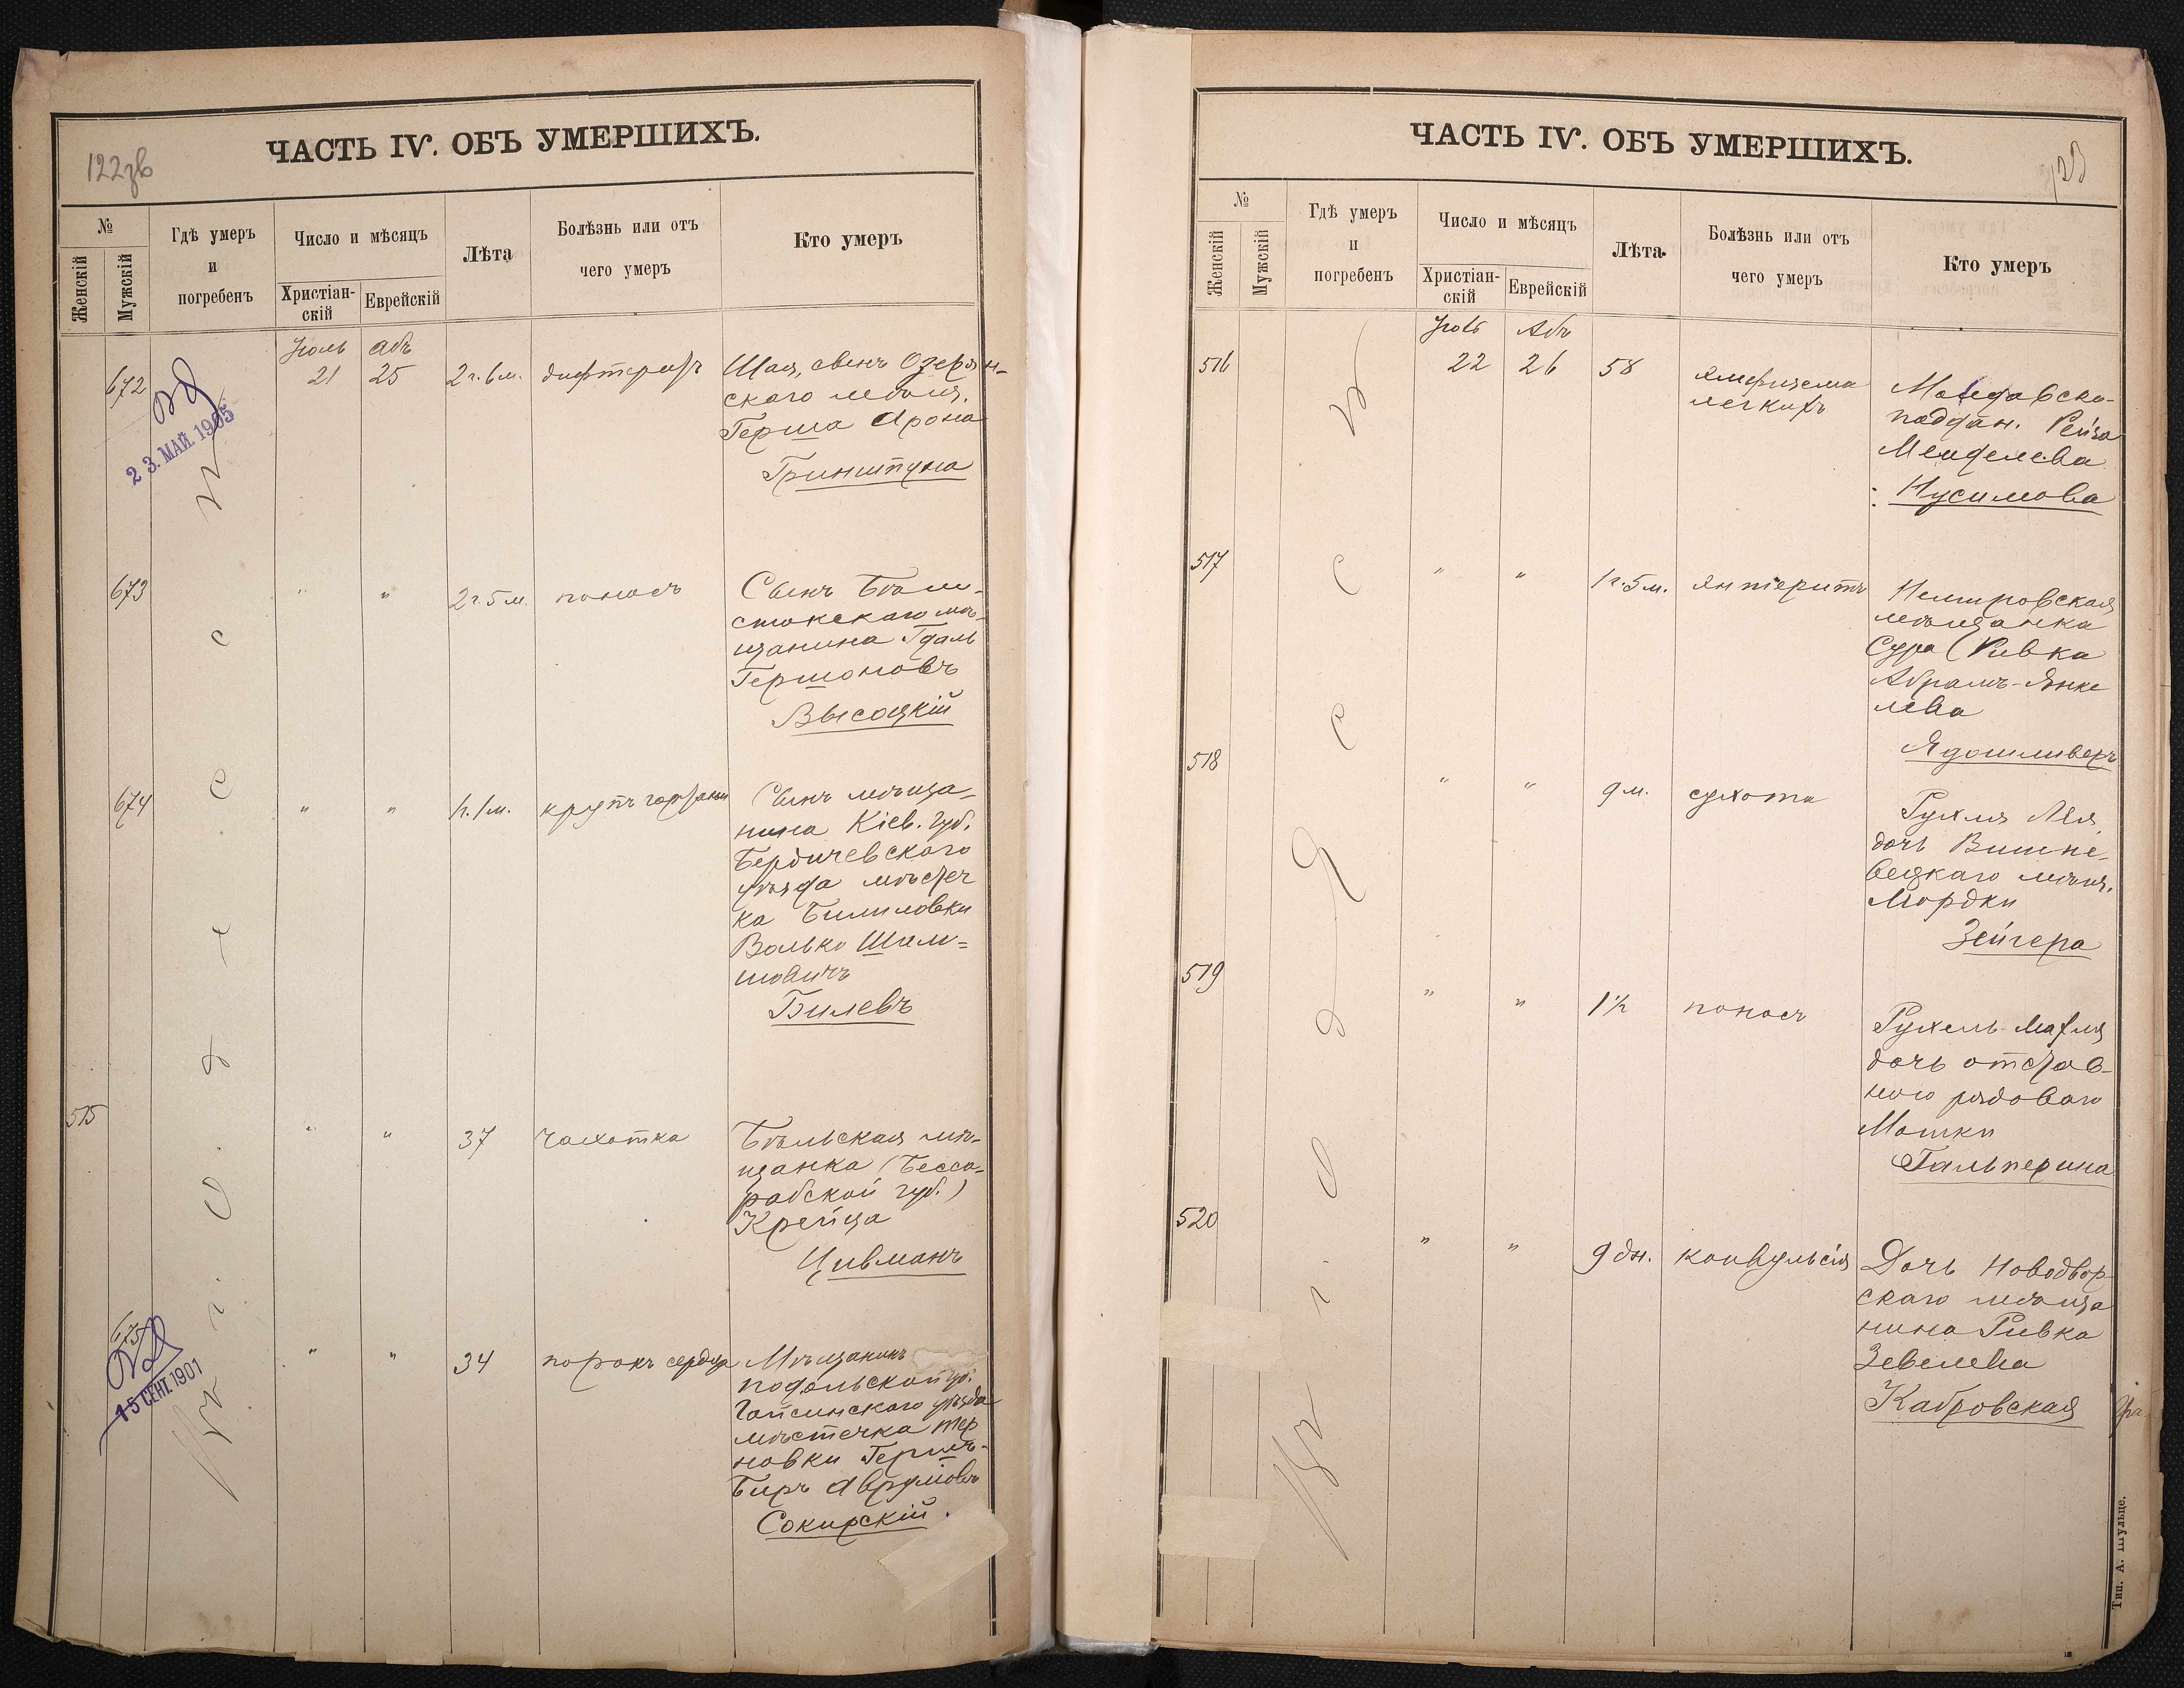 122зв
ЧАСТЬ IV. ОБЪ УМЕРШИХЪ.
№
Женскій
Мужскій
Гдѣ умеръ
и
погребенъ
Число и мѣсяцъ
Христіан-
скій
Еврейскій
Лѣта
Болѣзнь или отъ
чего умеръ
Кто умеръ
въ г. Одессѣ
Іюль Абъ
672
23. МАЙ. 1905
21 25 2 г. 6 м. дифтеритъ
Шая, сынъ Озерян-
скаго мѣщ.
Герша Арона
Гринштуна
673 " " 2 г. 5 м. поносъ
Сынъ Бѣло-
стокскаго мѣ-
щанина Гдаль
Гершоновъ
Высоцкій
674 " " 1 г. 1 м. крупъ гортани
Сынъ мѣща-
нина Кіев. губ.
Бердичевскаго
уѣзда мѣстеч
ка Билиловки
Волько Шлем-
мовичъ
Билевъ
515 " " 37 чахотка
Бѣльская мѣ-
щанка (Бесса-
рабской губ.)
Крейца
Цивманъ
675
15 СЕНТ. 1901
" " 34 порокъ сердца
Мѣщанинъ
подольской губ.
Гайсинского уѣзда
мѣстечка Тер
новки Гершъ-
Беръ Аврумовъ
Сокирскій.
123
ЧАСТЬ IV. ОБЪ УМЕРШИХЪ.
№
Женскій
Мужскій
Гдѣ умеръ
и
погребенъ
Число и мѣсяцъ
Христіан-
скій
Еврейскій
Лѣта
Болѣзнь или отъ
чего умеръ
Кто умеръ
въ г. Одессѣ
Іюль Абъ
516 22 26 58
эмфизема
легкихъ
Молдавско-
поддан. Рейза
Менделева
Нусимова
517 " " 1 г. 5 м. энтеритъ
Немировская
мѣщанка
Сура Ривка
Абрамъ-Янке
лева
Ядошливеръ
518 " " 9 м. сухоти
Рухля Лея
дочь Вишне-
вецкаго мѣщ.
Мордки
Зейгера
519 " " 1 1/2 поносъ
Рухель Матля
дочь отстав-
ного рядоваго
Мошки
Гальперина
520 " " 9 дн. конвульсія
Дочь Новодвор-
скаго мѣща
нина Ривка
Зевелева
Кабровская
Тип. А. Шульце.